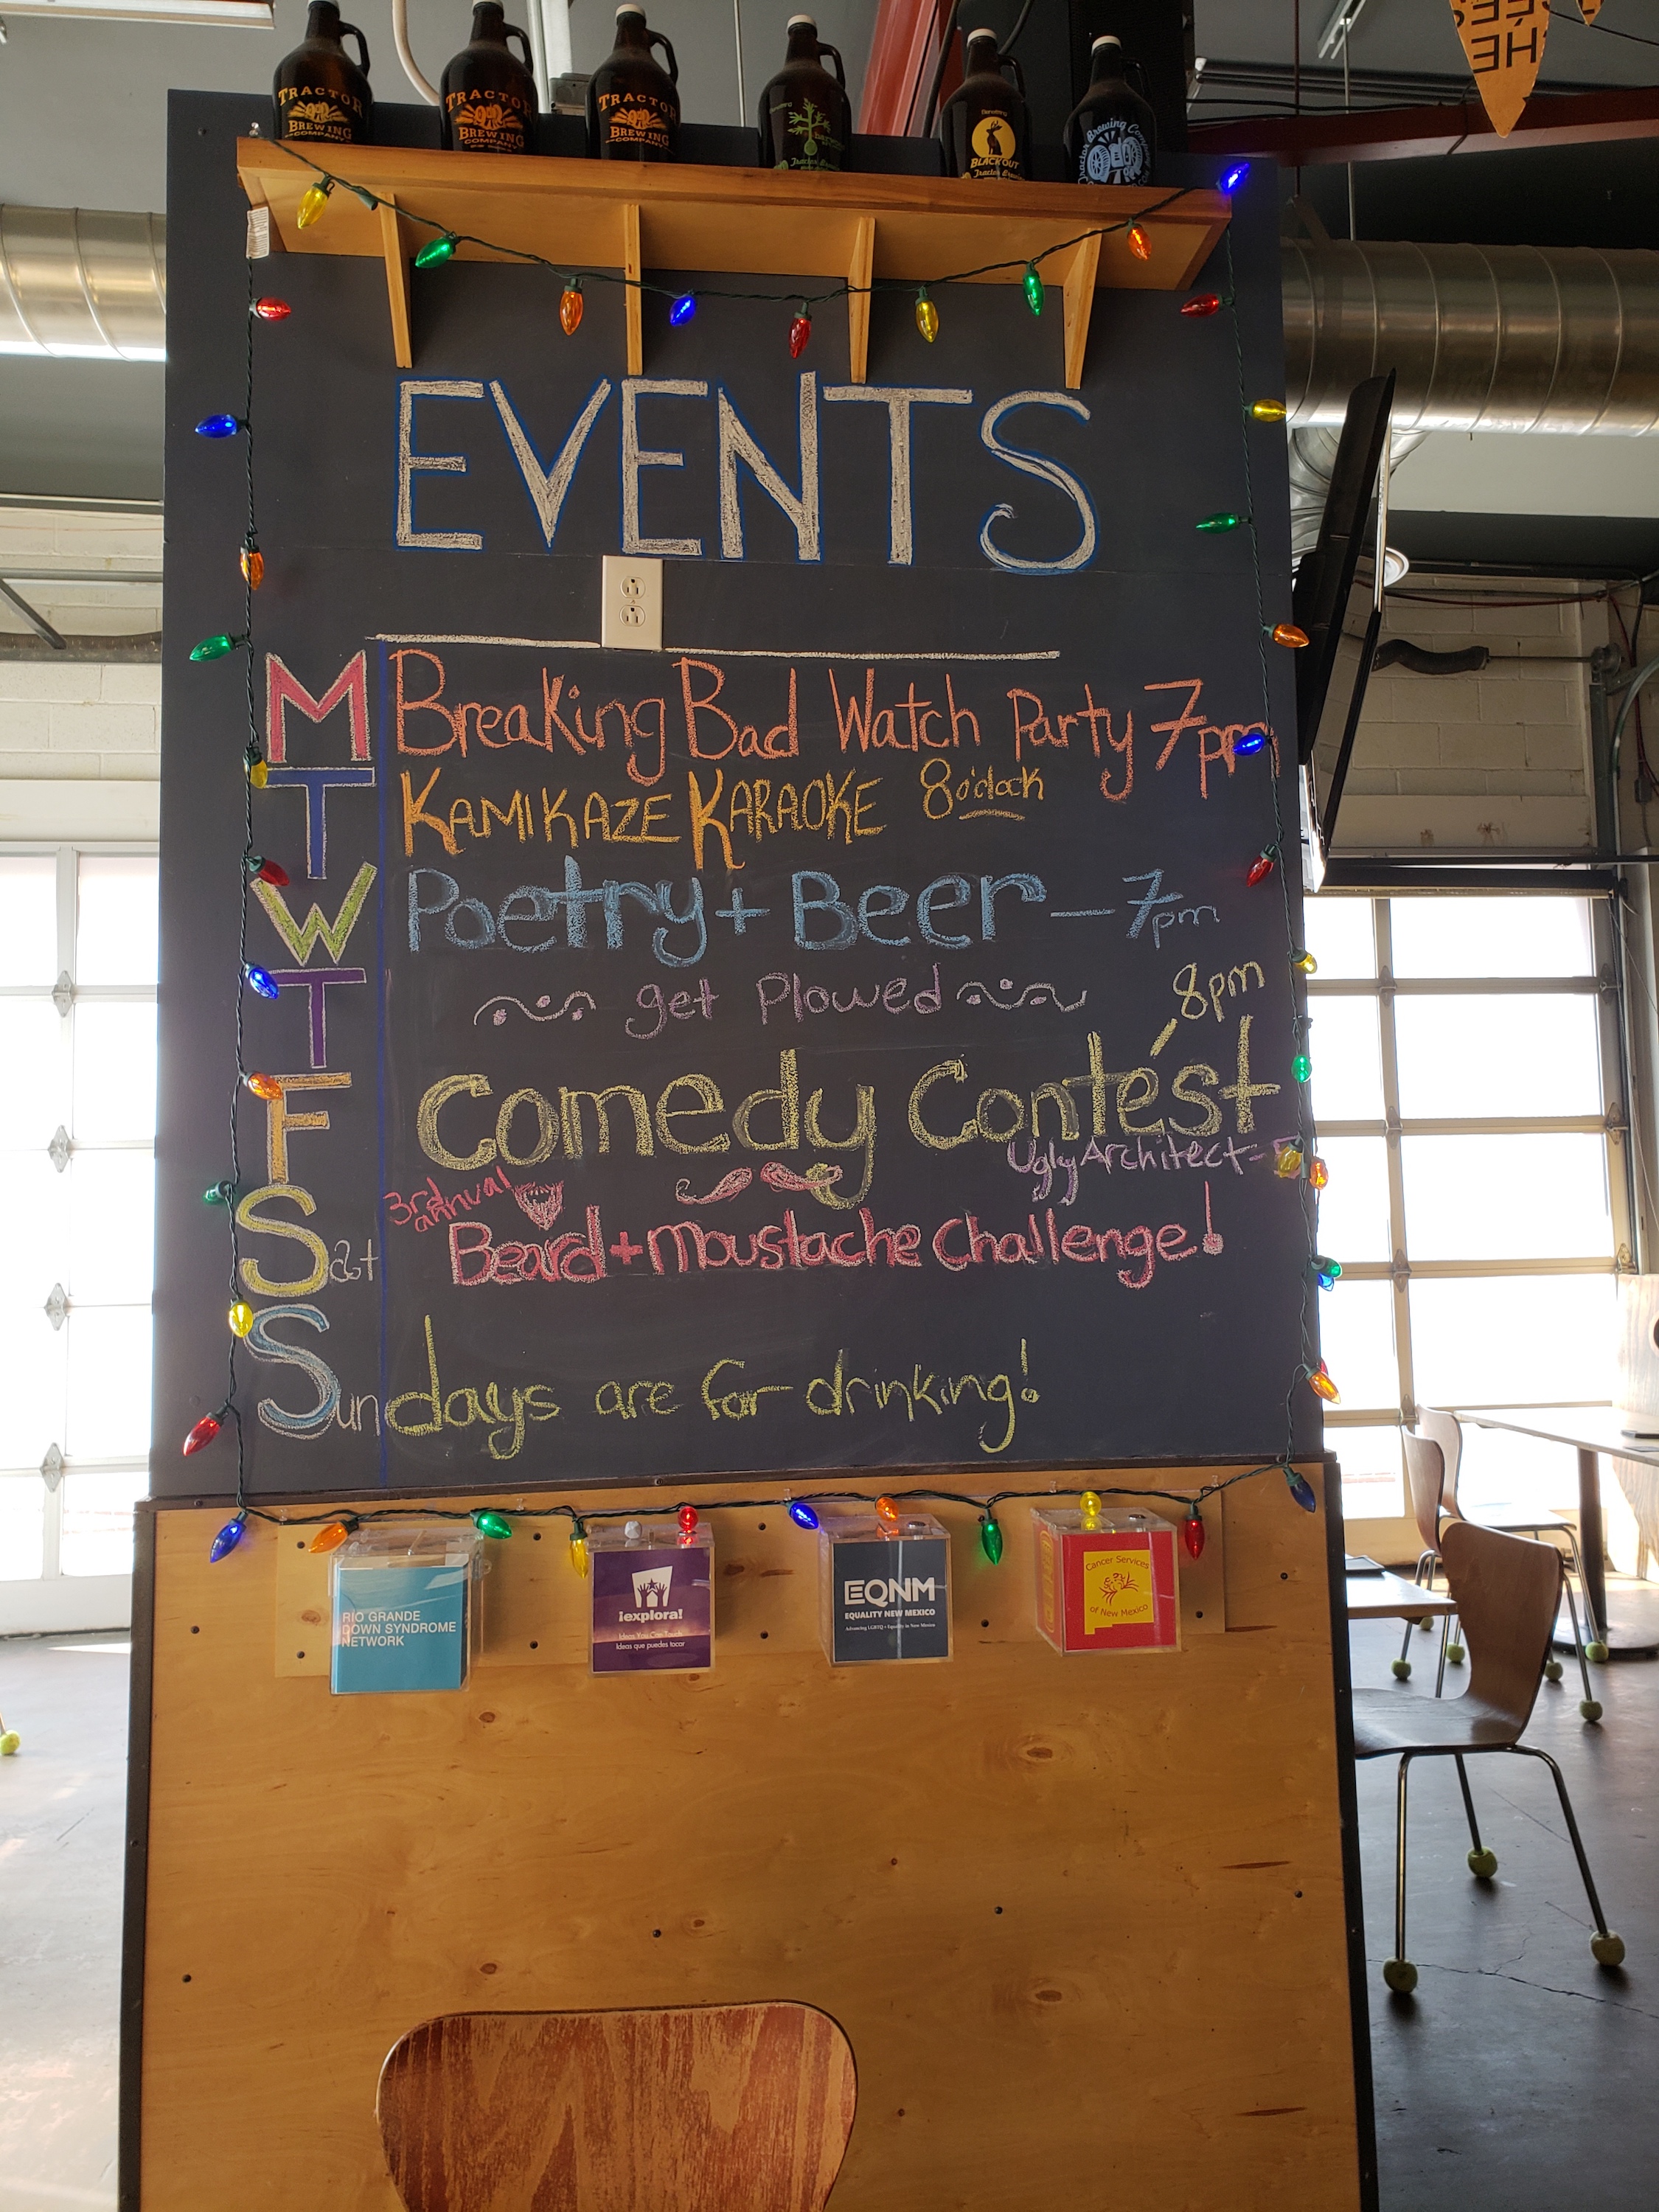 TRACTOR
BREWING
COMPANY
TRACTOR
BREWING
COMPANY
TRACTOR
BREWING
COMPANY
BLACKOUT
Tractor Brewing Company
EVENTS
M Breaking Bad Watch Party 7pm
T KAMIKAZE KARAOKE 8 o'clock
W Poetry + Beer — 7pm
T get Plowed
8pm
F Comedy Contest
Ugly Architect-
3rd annual
Sat Beard + Moustache Challenge!
Sundays are for drinking!
RIO GRANDE
DOWN SYNDROME
NETWORK
¡explora!
Ideas You Can Touch
Ideas que puedes tocar
EQNM
EQUALITY NEW MEXICO
Advancing LGBTQ+ Equality in New Mexico
Cancer Services
of New Mexico